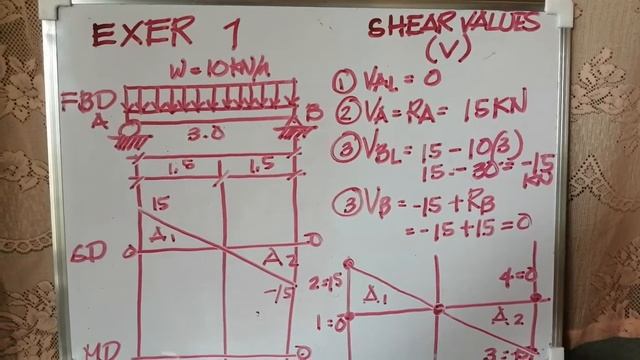 EXER 1
W = 10 KN/m
FBD
A
B
3.0
1.5
1.5
15
A1
0
SD
0
A2
-15
MD
0
SHEAR VALUES
(V)
① VAL = 0
② VA = RA = 15 KN
③ VBL = 15 - 10(3)
15 - 30 = -15
KN
③ VB = -15 + RB
= -15 + 15 = 0
2=15
A1
4=0
1=0
A2